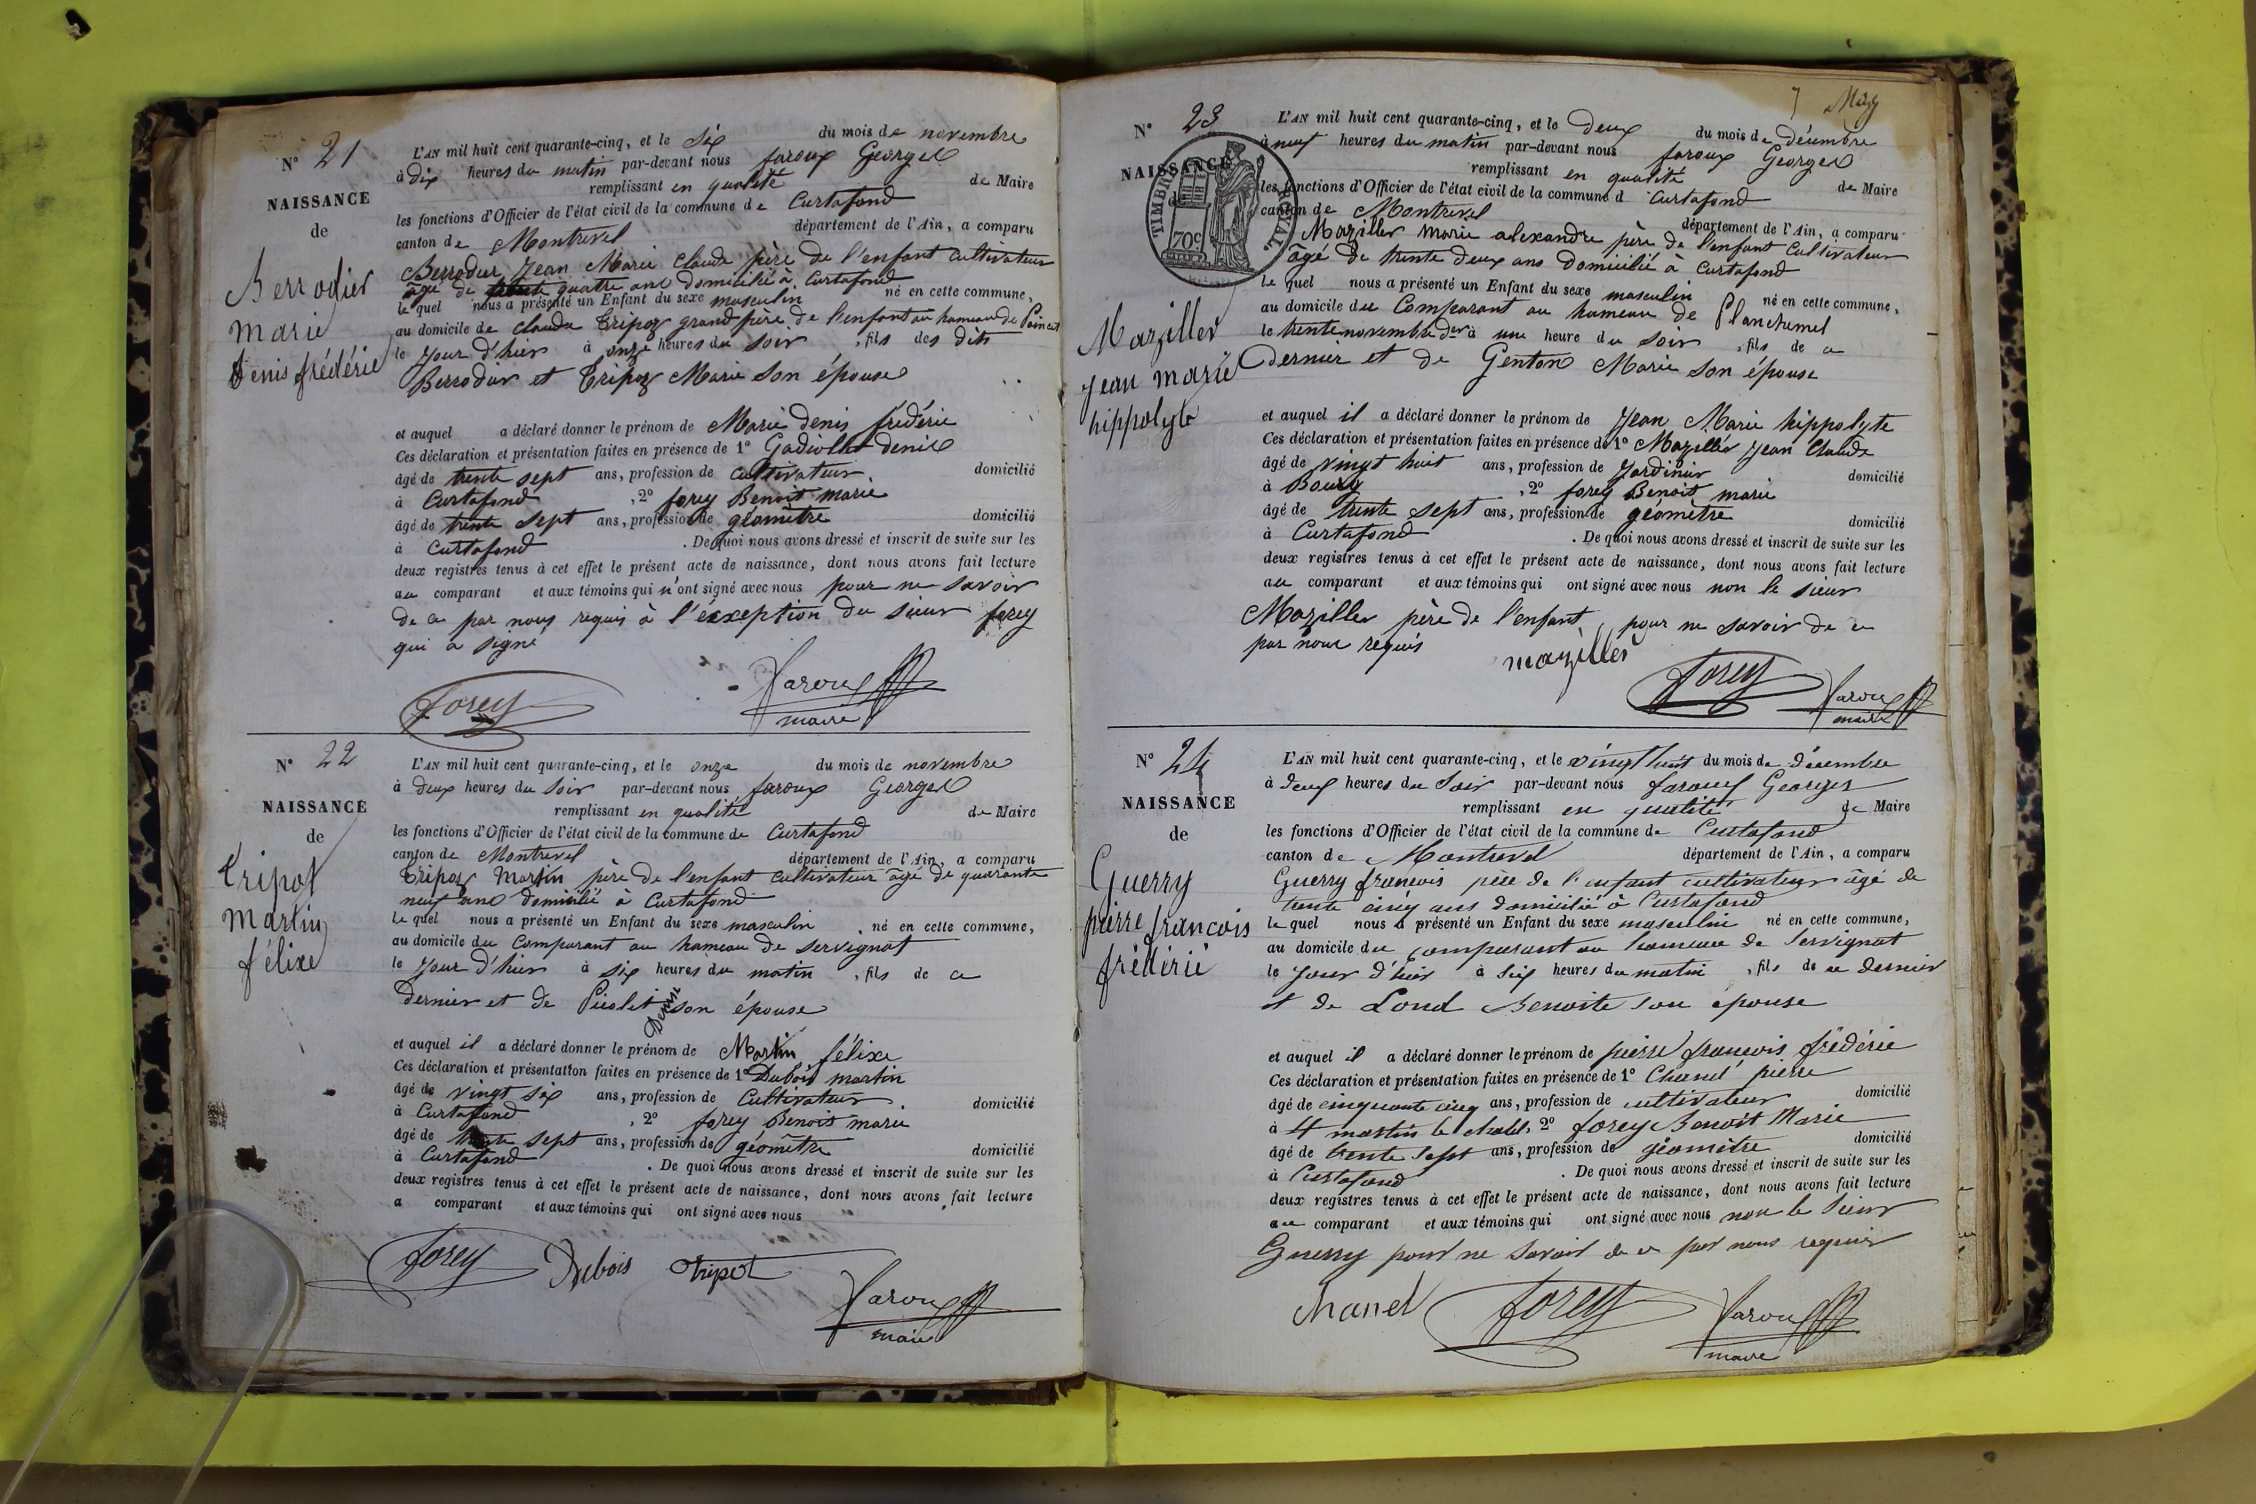 N° 21
NAISSANCE
de
Berrodier
marie
Denis frédéric
L'AN mil huit cent quarante-cinq, et le six du mois de novembre
à dix heures du matin par-devant nous faroux Georges
remplissant en qualité de Maire
les fonctions d'Officier de l'état civil de la commune de Curtafond
canton de Montrevel département de l'Ain, a comparu
Berrodier Jean Marie Claude père de l'enfant cultivateur
âgé de quatre ans domicilié à Curtafond
le quel nous a présenté un Enfant du sexe masculin né en cette commune,
au domicile de claude Tripoz grand père de l'enfant au hameau de
le jour d'hier à onze heures du soir, fils des dits
Berrodier et Tripoz Marie son épouse
et auquel a déclaré donner le prénom de Marie denis frédéric
Ces déclaration et présentation faites en présence de 1° Gadiollet denis
âgé de trente sept ans, profession de cultivateur domicilié
à Curtafond, 2° forey Benoit marie
âgé de trente sept ans, profession de géomètre domicilié
à Curtafond. De quoi nous avons dressé et inscrit de suite sur les
deux registres tenus à cet effet le présent acte de naissance, dont nous avons fait lecture
au comparant et aux témoins qui n'ont signé avec nous pour ne savoir
de ce par nous requis à l'éxception du sieur forey
qui a signé
Forey Faroux
maire
N° 22
NAISSANCE
de
Tripot
Martin
félixe
L'AN mil huit cent quarante-cinq, et le onze du mois de novembre
à deux heures du soir par-devant nous faroux Georges
remplissant en qualité de Maire
les fonctions d'Officier de l'état civil de la commune de Curtafond
canton de Montrevel département de l'Ain, a comparu
Tripoz Martin père de l'enfant cultivateur âgé de quarante
neuf ans domicilié à Curtafond
le quel nous a présenté un Enfant du sexe masculin, né en cette commune,
au domicile du Comparant au hameau de servignat
le jour d'hier à six heures du matin, fils de ce
dernier et de Picolet Denise son épouse
et auquel il a déclaré donner le prénom de Martin félixe
Ces déclaration et présentation faites en présence de 1° Dubois martin
âgé de vingt six ans, profession de Cultivateur domicilié
à Curtafond, 2° forey Benoit marie
âgé de trente sept ans, profession de géomètre domicilié
à Curtafond. De quoi nous avons dressé et inscrit de suite sur les
deux registres tenus à cet effet le présent acte de naissance, dont nous avons fait lecture
a comparant et aux témoins qui ont signé avec nous
Forey Dubois tripot Faroux
maire
7
N° 23
NAISSANCE
TIMBRE ROYAL
70c
Mazillier
jean marie
hippolyte
L'AN mil huit cent quarante-cinq, et le deux du mois de décembre
à neuf heures du matin par-devant nous faroux Georges
remplissant en qualité de Maire
les fonctions d'Officier de l'état civil de la commune d Curtafond
canton de Montrevel département de l'Ain, a comparu
Maziller Marie alexandre père de l'enfant Cultivateur
âgé de trente deux ans domicilié à Curtafond
le quel nous a présenté un Enfant du sexe masculin né en cette commune,
au domicile du Comparant au hameau de Planchemel
le trente novembre der à une heure du soir, fils de ce
dernier et de Genton Marie son épouse
et auquel il a déclaré donner le prénom de Jean Marie hippolyte
Ces déclaration et présentation faites en présence de 1° Maziller Jean Claude
âgé de vingt huit ans, profession de Jardinier domicilié
à Bourg, 2° forey Benoit marie
âgé de trente sept ans, profession de géomètre domicilié
à Curtafond. De quoi nous avons dressé et inscrit de suite sur les
deux registres tenus à cet effet le présent acte de naissance, dont nous avons fait lecture
au comparant et aux témoins qui ont signé avec nous non le sieur
Maziller père de l'enfant, pour ne savoir de ce
par nous requis
maziller Forey Faroux
maire
N° 24
NAISSANCE
de
Guerry
pierre francois
frédéric
L'AN mil huit cent quarante-cinq, et le vingt huit du mois de décembre
à deux heures du soir par-devant nous faroux Georges
remplissant en qualité de Maire
les fonctions d'Officier de l'état civil de la commune de Curtafond
canton de Montrevel département de l'Ain, a comparu
Guerry francois père de l'enfant cultivateur âgé de
trente cinq ans domicilié à Curtafond
le quel nous a présenté un Enfant du sexe masculin né en cette commune,
au domicile du comparant au hameau de Servignat
le jour d'hier à six heures du matin, fils de ce dernier
et de Lond Benoite son épouse
et auquel il a déclaré donner le prénom de pierre francois frédéric
Ces déclaration et présentation faites en présence de 1° Chanel pierre
âgé de cinquante cinq ans, profession de cultivateur domicilié
à st martin le chatel, 2° forey Benoit Marie
âgé de trente sept ans, profession de géomètre domicilié
à Curtafond. De quoi nous avons dressé et inscrit de suite sur les
deux registres tenus à cet effet le présent acte de naissance, dont nous avons fait lecture
au comparant et aux témoins qui ont signé avec nous non le sieur
Guerry pour ne savoir de ce par nous requis
chanel Forey Faroux
maire